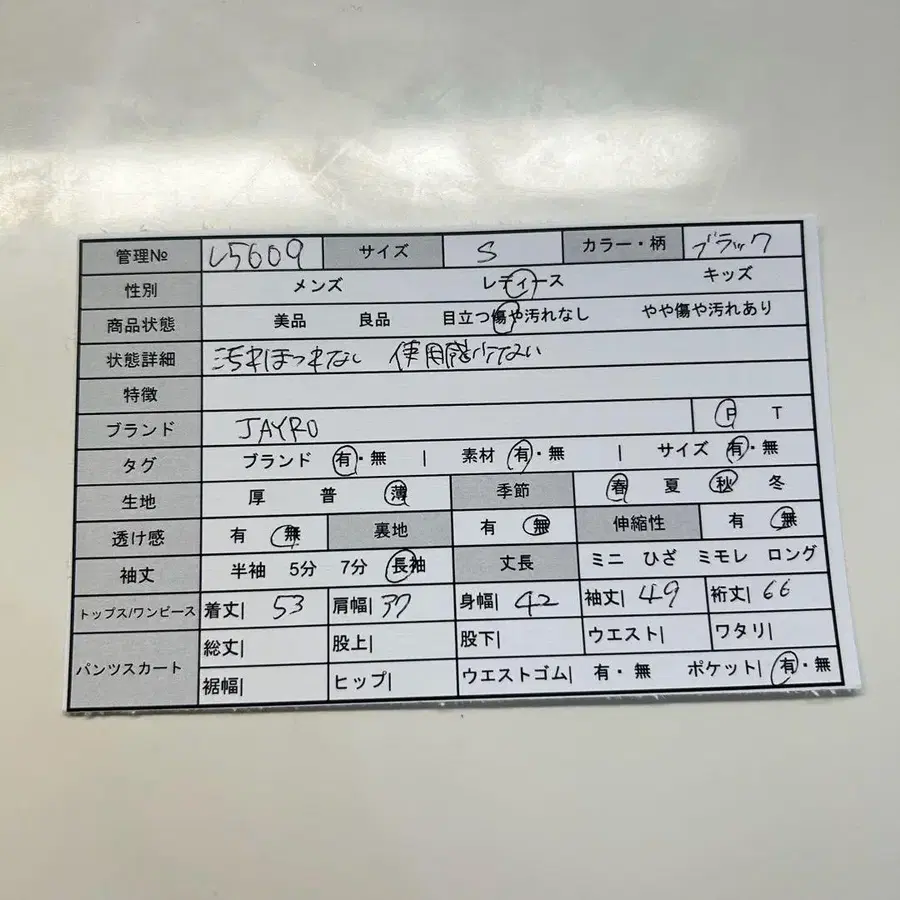 管理№ L5609 サイズ S カラー・柄 ブラック
性別 メンズ レディース キッズ
商品状態 美品 良品 目立つ傷や汚れなし やや傷や汚れあり
状態詳細 汚れほつれなし 使用感少ない
特徴
ブランド JAYRO P T
タグ ブランド 有・無 | 素材 有・無 | サイズ 有・無
生地 厚 普 薄 季節 春 夏 秋 冬
透け感 有 無 裏地 有 無 伸縮性 有 無
袖丈 半袖 5分 7分 長袖 丈長 ミニ ひざ ミモレ ロング
トップス/ワンピース 着丈| 53 肩幅| 37 身幅| 42 袖丈| 49 裄丈| 66
パンツスカート 総丈| 股上| 股下| ウエスト| ワタリ|
裾幅| ヒップ| ウエストゴム| 有・無 ポケット| 有・無